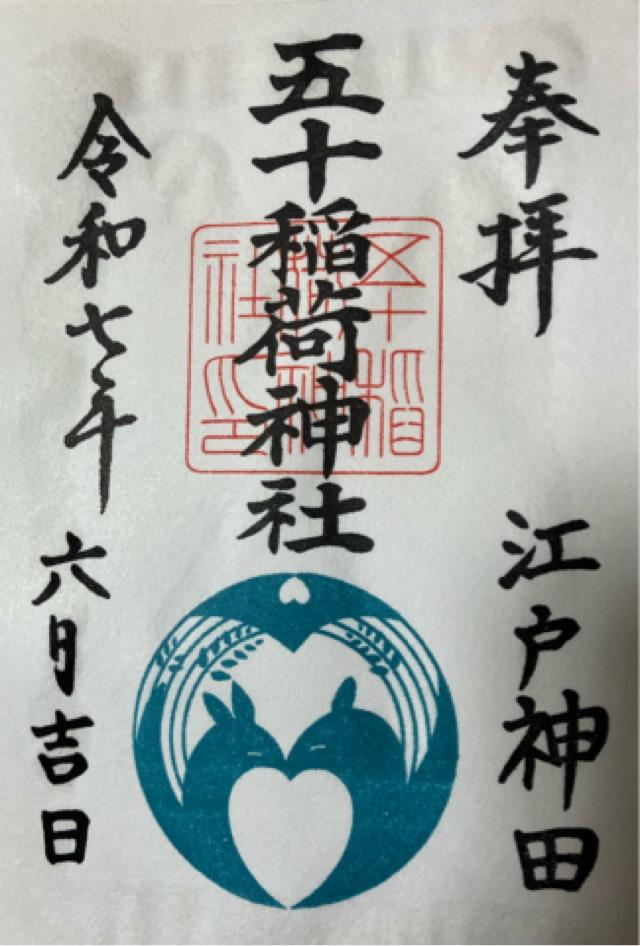 奉拝
江戸神田
五十稲荷神社
五十稲荷神社之印
令和七年
六月吉日